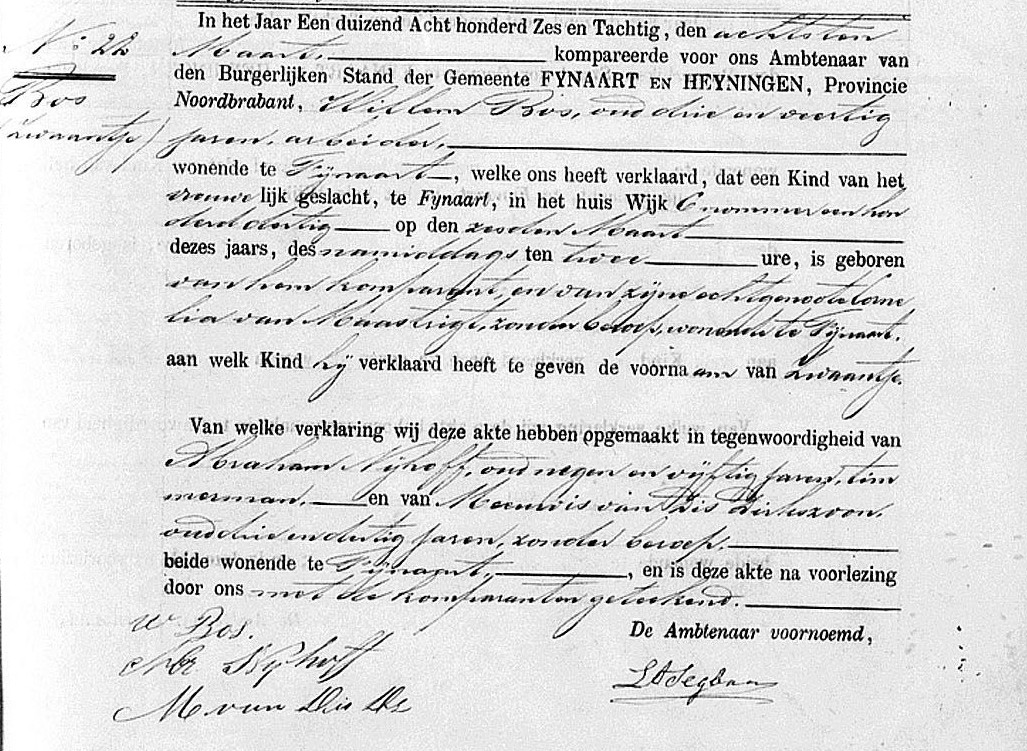 In het Jaar Een duizend Acht honderd Zes en Tachtig, den achtsten
No. 22 Maart, kompareerde voor ons Ambtenaar van
den Burgerlijken Stand der Gemeente FYNAART EN HEYNINGEN, Provincie
Bos Noordbrabant, Willem Bos, oud drie en veertig
(Zwaantje) jaren, arbeider,
wonende te Fijnaart, welke ons heeft verklaard, dat een Kind van het
vrouwelijk geslacht, te Fynaart, in het huis Wijk C nommer een hon
derd dertig op den zesden Maart
dezes jaars, des namiddags ten twee ure, is geboren
van hem komparant, en van zijne echtgenoote Corne
lia van Maastrigt, zonder beroep, wonende te Fijnaart.
aan welk Kind hij verklaard heeft te geven de voornaam van Zwaantje.
Van welke verklaring wij deze akte hebben opgemaakt in tegenwoordigheid van
Abraham Nijhoff, oud negen en vijftig jaren, tim
merman, en van Meeuwis van Dis Dirkszoon,
oud drie en dertig jaren, zonder beroep,
beide wonende te Fijnaart, en is deze akte na voorlezing
door ons met de komparanten geteekend.
W Bos.
De Ambtenaar voornoemd,
Nijhoff
M. van Dis Dz